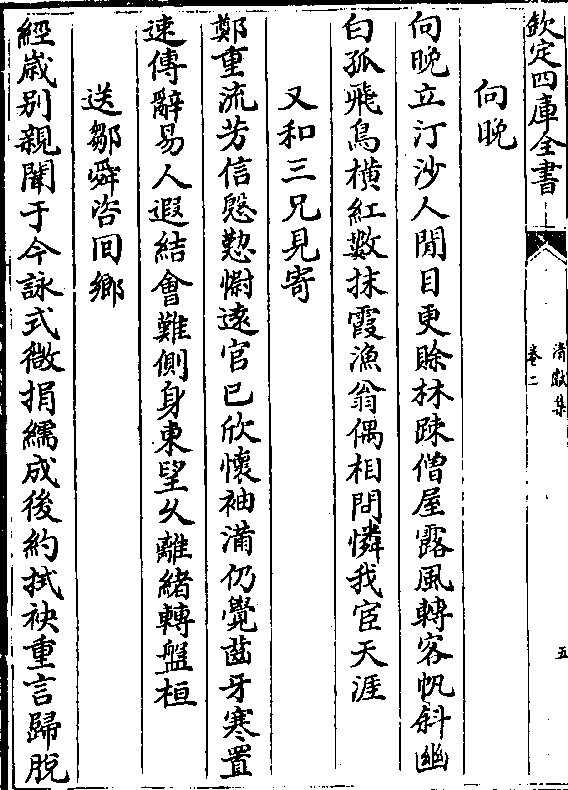 欽定四庫全書
清獻集
卷二
五
向晚
向晚立汀沙人閒目更賒林疎僧屋露風轉客帆斜幽
白孤飛鳥橫紅數抹霞漁翁偶相問憐我宦天涯
又和三兄見寄
鄭重流芳信慇懃慰遠官已欣懷袖滿仍覺齒牙寒置
速傳辭易人遐結會難側身東望乆離緒轉盤桓
送鄒舜咨回鄉
經歲别親闈于今詠式微捐繻成後約拭袂重言歸脫